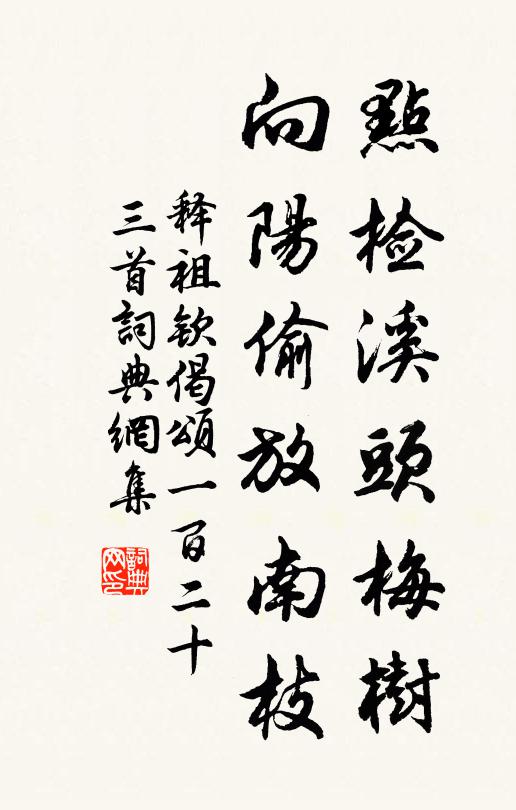 點檢溪頭梅樹
向陽偷放南枝
释祖欽偈頌一百二十
三首詞典網集
詞典
网印